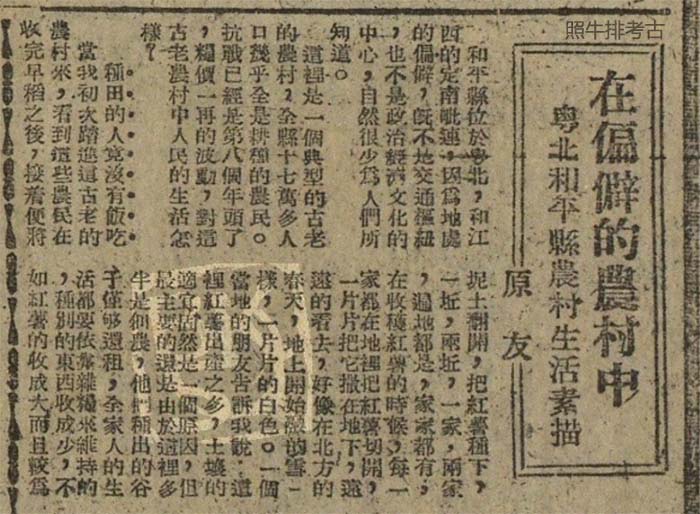 照牛排考古
在偏僻的農村中
粵北和平縣農村生活素描
原友
和平縣位於粵北,和江
西的定南毗連,因爲地處
的偏僻,旣不是交通樞紐
,也不是政治經濟文化的
中心,自然很少爲人們所
知道。
這裡是一個典型的古老
的農村,全縣十七萬多人
口幾乎全是耕種的農民。
抗戰已經是第八個年頭了
,糧價一再的波動,對這
古老農村中人民的生活怎
樣?
種田的人竟沒有飯吃
當我初次踏進這古老的
農村來,看到這些農民在
收完早稻之後,接着便將
坭土翻開,把紅薯種下,
一坵,兩坵,一家,兩家
,遍地都是,家家都有,
在收穫紅薯的時候,每一
家都在地裡把紅薯切開,
一片片把它撒在地下,遠
遠的看去,好像在北方的
春天,地上開始濛的雪一
樣,一片片的白色。一個
當地的朋友告訴我說:這
裡紅薯出產之多,土壤的
適宜固然是一個原因,但
最主要的還是由於這裡多
半是佃農,他們種出的谷
子僅够還租,全家人的生
活都要依靠雜糧來維持的
,種別的東西收成少,不
如紅薯的收成大而且較爲